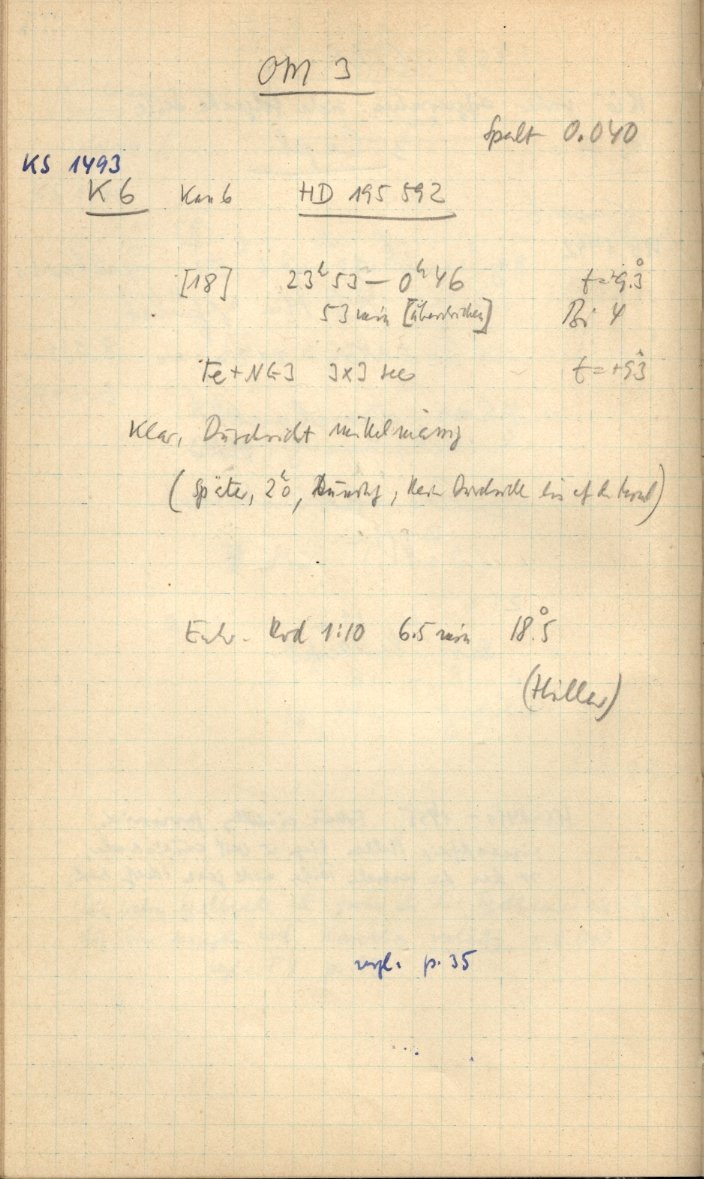 OM 3
Spalt 0.040
KS 1493
K6 Kan 6 HD 195 592
[18] 23h 53 — 0h 46 t = +9.3°
53 min [überstrichen] Bi 4
Fe + NG3 3x3 sec t = +9.3
Klar, Durchsicht mittelmässig
(Später, 2h0, Dunstig, kein Durchsicht bis auf den
Entw. Rod 1:10 6.5 min 18.5°
(Hiller)
vergl. p. 35